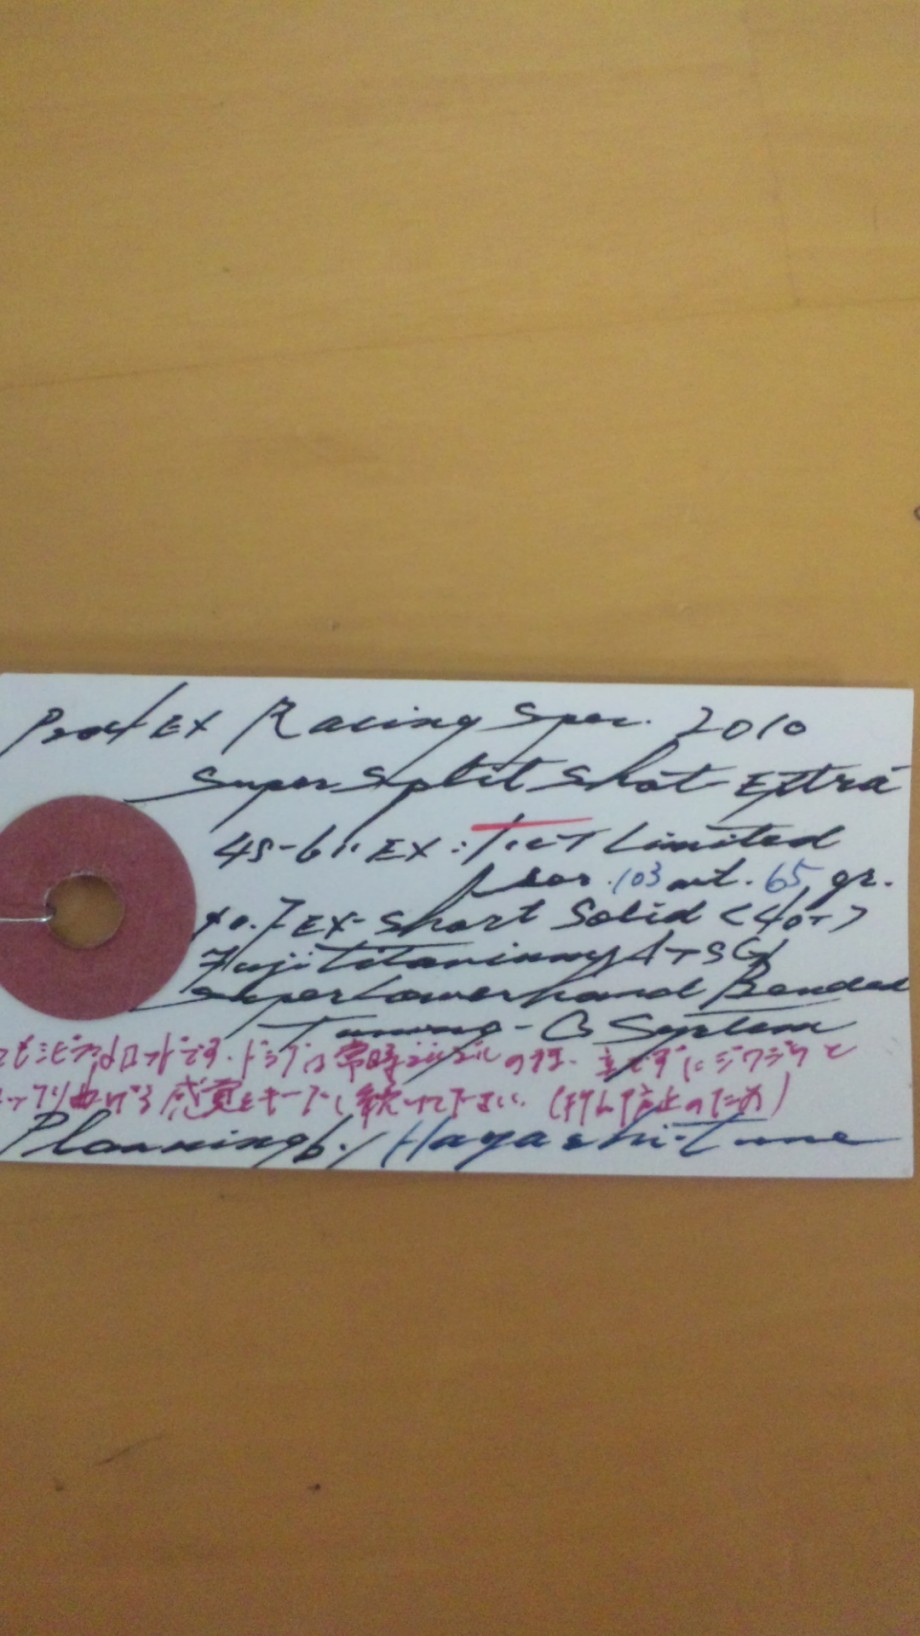 EX Racing Spec. 2010
Super Split Shot Extra
EX: TicT Limited
103 wt. 65 gr.
EX-Short Solid <40T>
Fuji Titanium
Super Lowerhand Bended
Tuning-B System
ロッドです。ドラグは常時 の事、立てずにジワジワと
曲げる感覚をキープし続けて下さい。(折れ防止のため)
Planning by Hayashi-Tune